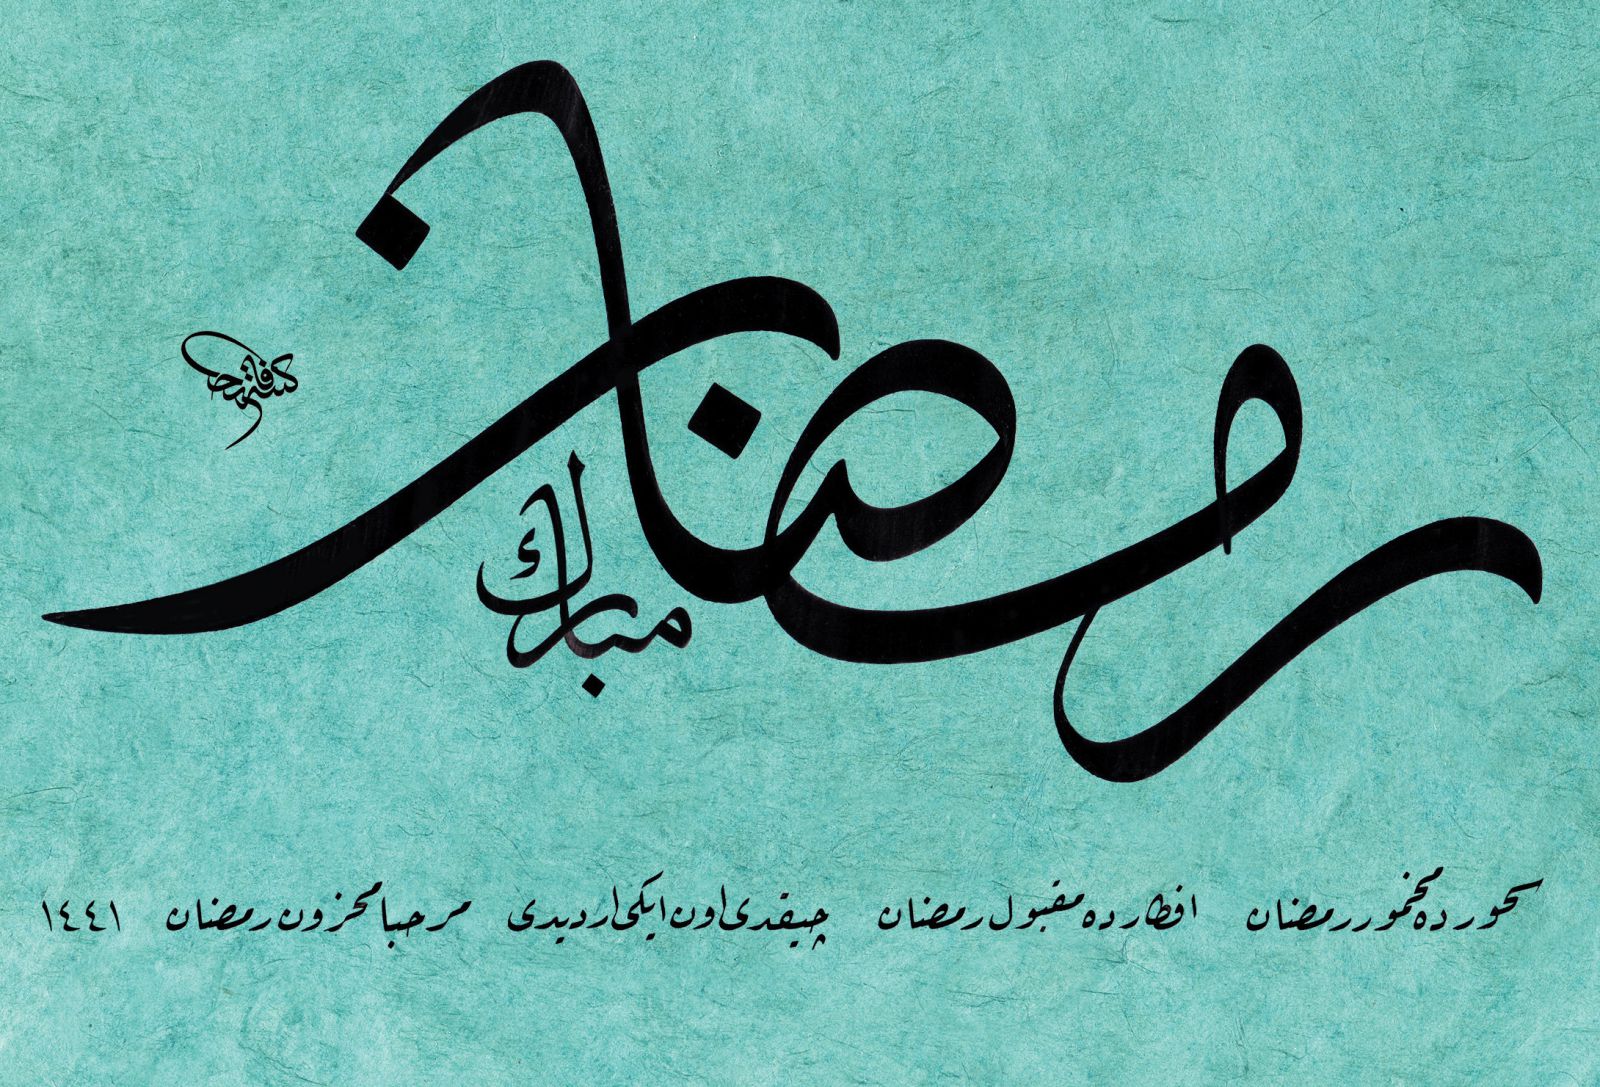 رمضان
مبارك
سحورده مخمور رمضان افطارده مقبول رمضان چيقدى اون ايكى ارديدى مرحبا محزون رمضان ١٤٤١